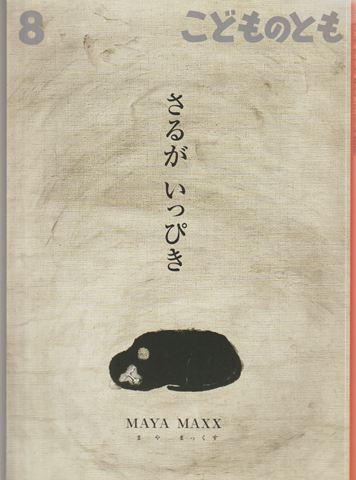 8 こどものとも
さるが いっぴき
MAYA MAXX
まや まっくす